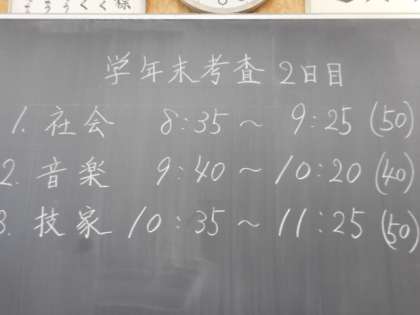 学年末考査 2日目
1. 社会 8:35〜 9:25 (50)
2. 音楽 9:40〜10:20 (40)
3. 技家 10:35〜11:25 (50)